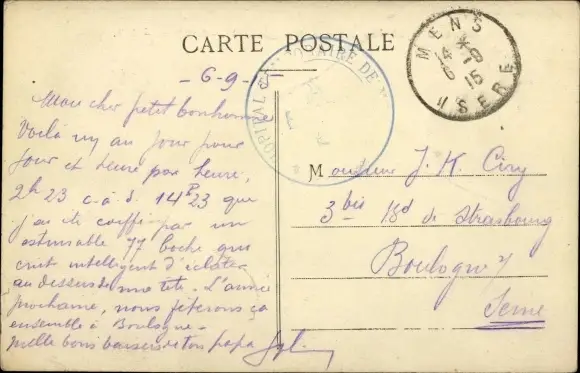 CARTE POSTALE
MENS
14 *
6 -9
15
ISERE
HOPITAL
DE
- 6-9-15
Mon cher petit bonhomme
Voilà un an jour pour
jour et heure par heure,
2h 23 c. à d. 14h 23 que
j'ai été coiffé par un
estimable 77 boche qui
crut intelligent d'éclater
au dessus de ma tête. L'année
prochaine, nous fêterons ça
ensemble à Boulogne -
Mille bons baisers de ton papa
Monsieur J. K. Ciry
3 bis Bd de Strasbourg
Boulogne s/
Seine